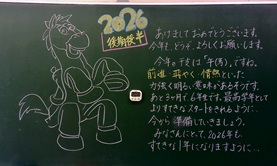 2026
後期後半
ありましておめでとうございます。
今年も、どうぞ、よろしくお願いします。
今年の干支は「午(馬)」ですね。
前進・飛やく・情熱といった
力強く明るい意味があるそうです。
あと3ヶ月で6年生です。最高学年として
よりすてきなスタートをきれるように、
今から準備していきましょう。
みなさんにとって、2026年も
すてきな1年になりますように…